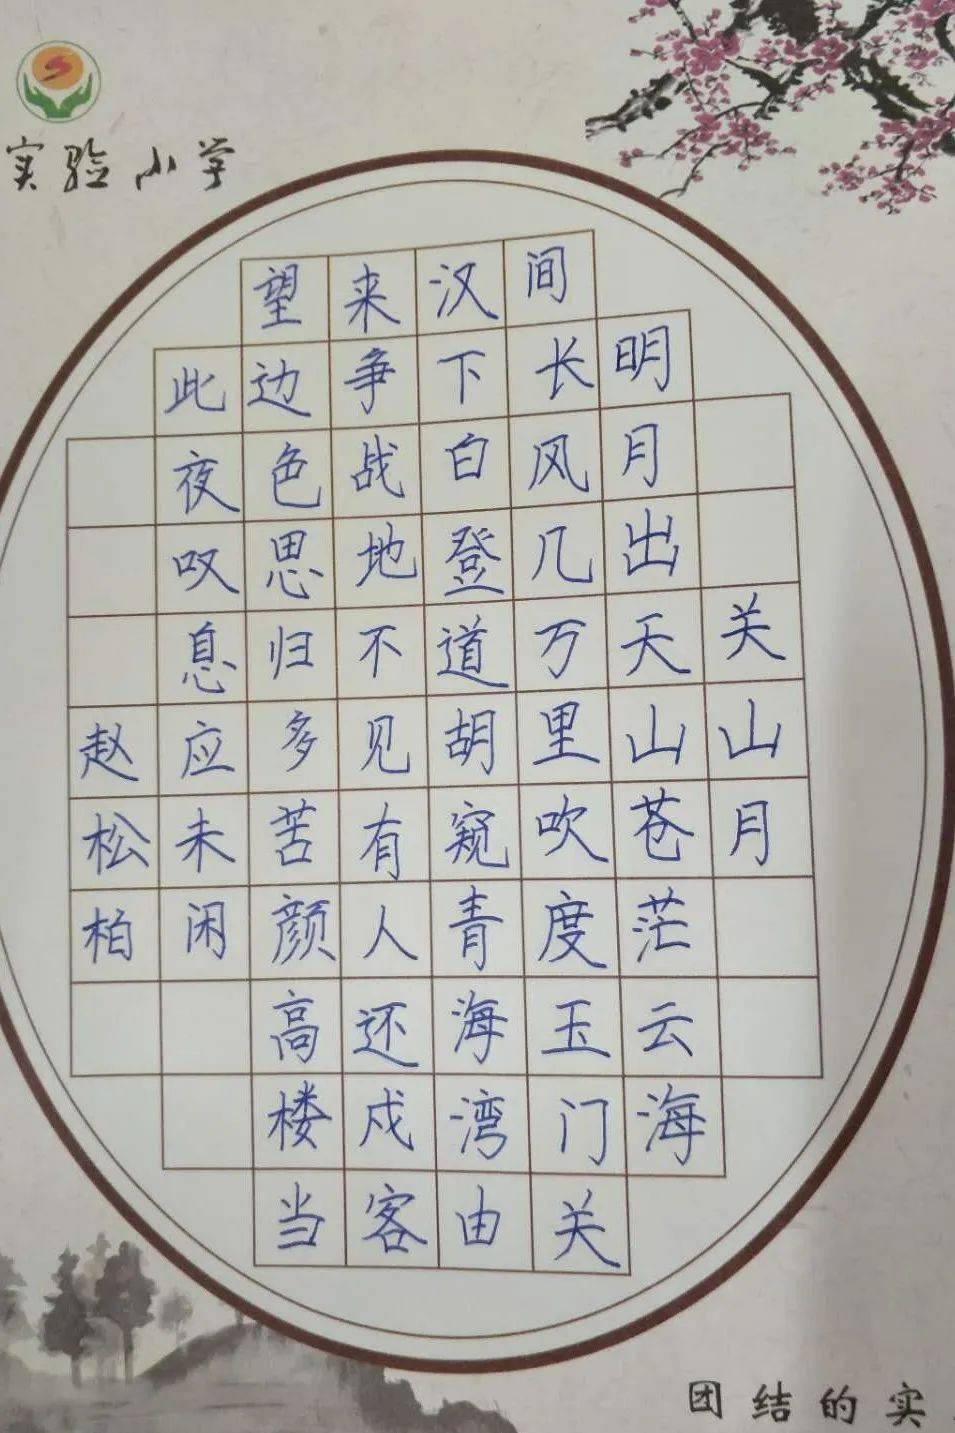 实验小学
关山月
明月出天山苍茫云海
间长风几万里吹度玉门关
汉下白登道胡窥青海湾由
来争战地不见有人还戍客
望边色思归多苦颜高楼当
此夜叹息应未闲
赵松柏
团结的实